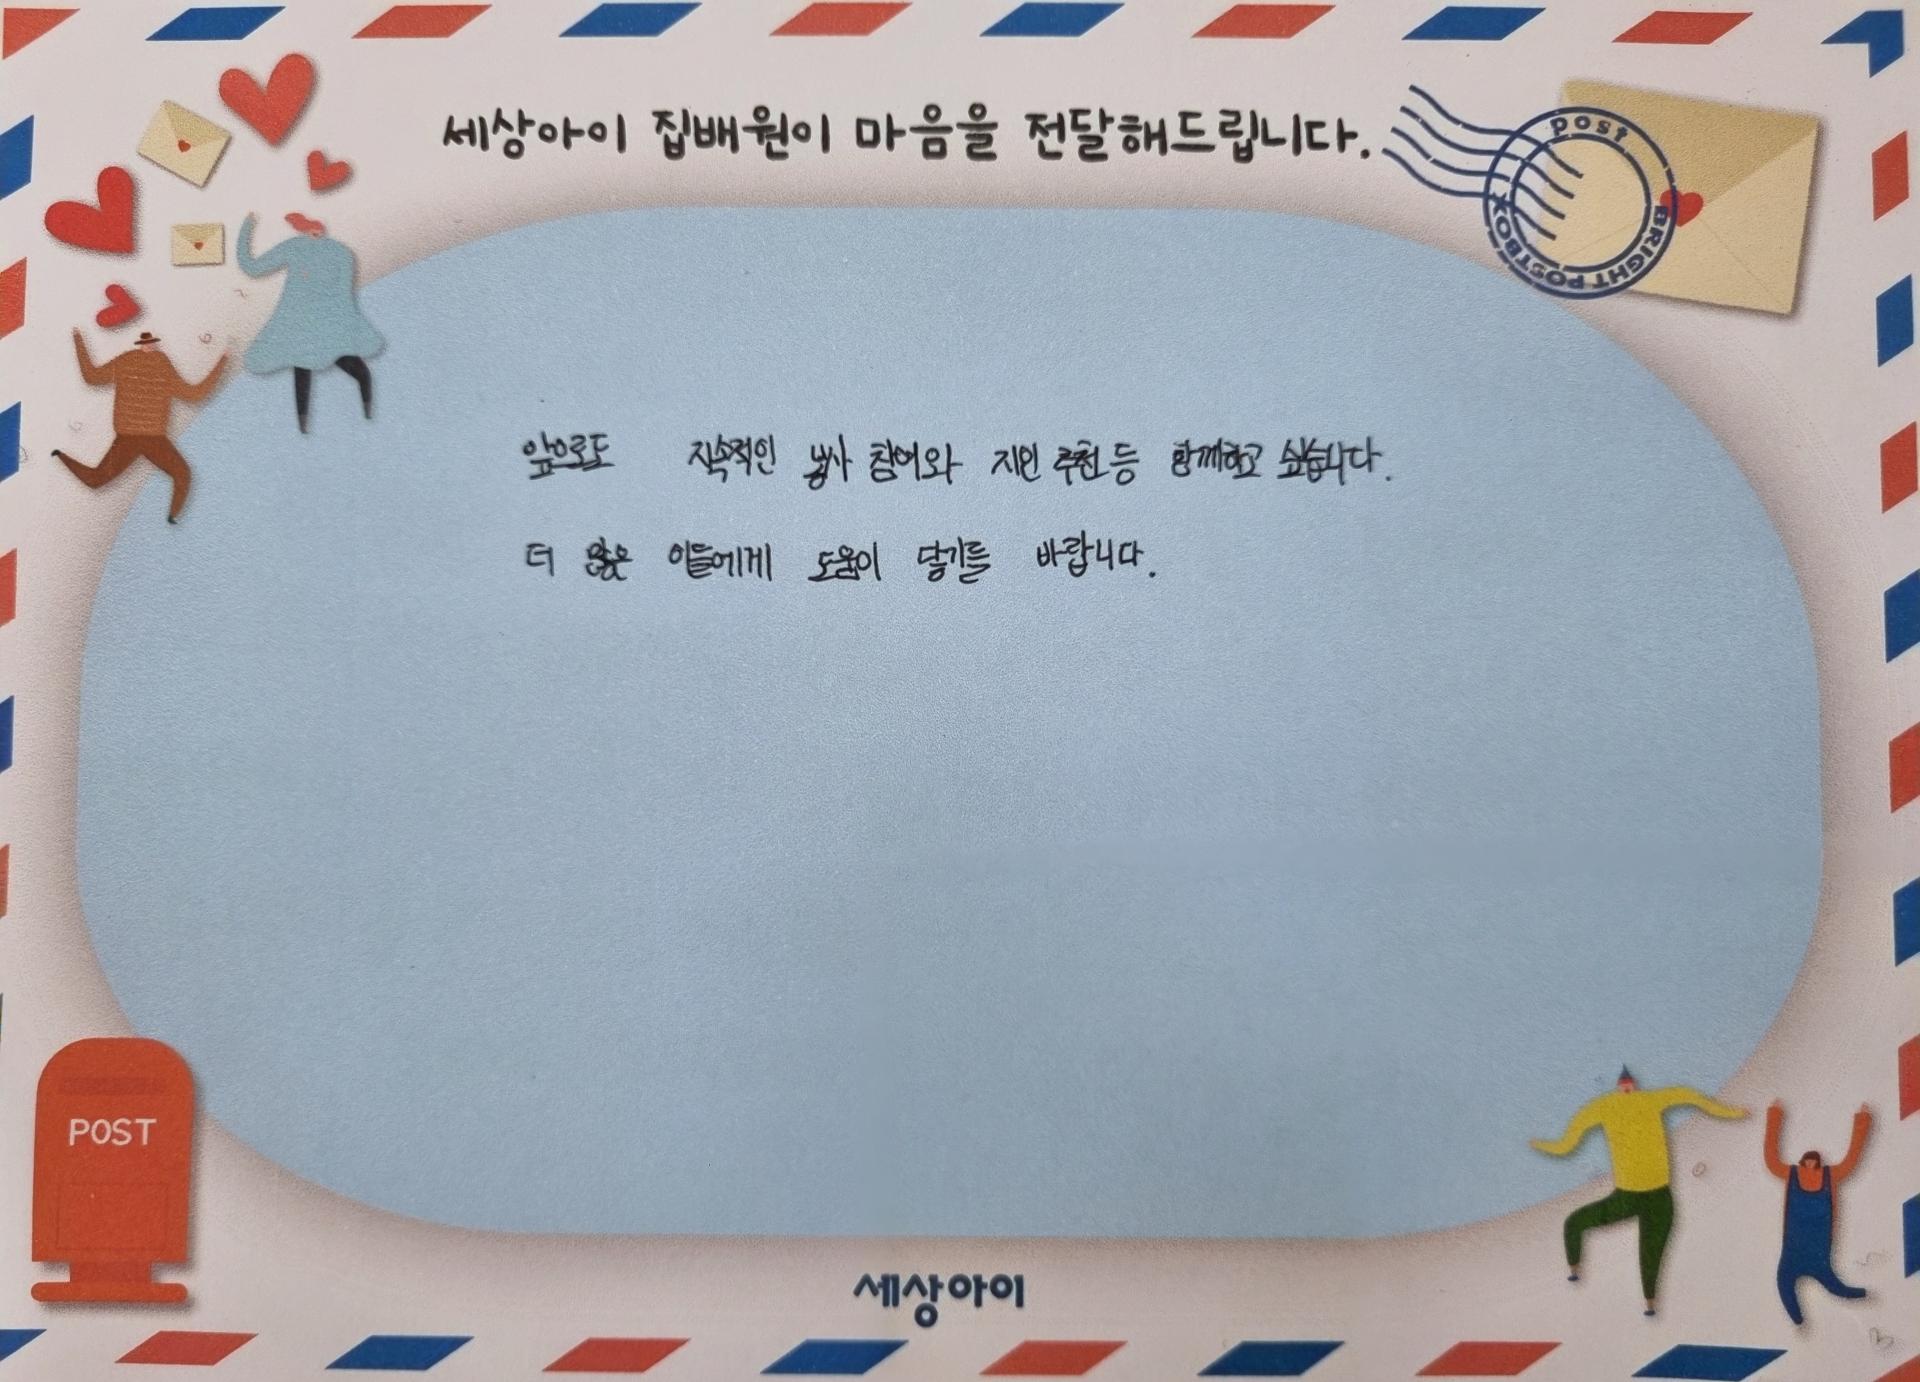 세상아이 집배원이 마음을 전달해드립니다.
post
BRIGHT POSTBOX
앞으로도 지속적인 봉사 참여와 지인 추천 등 함께하고 싶습니다.
더 많은 이들에게 도움이 닿기를 바랍니다.
POST
세상아이